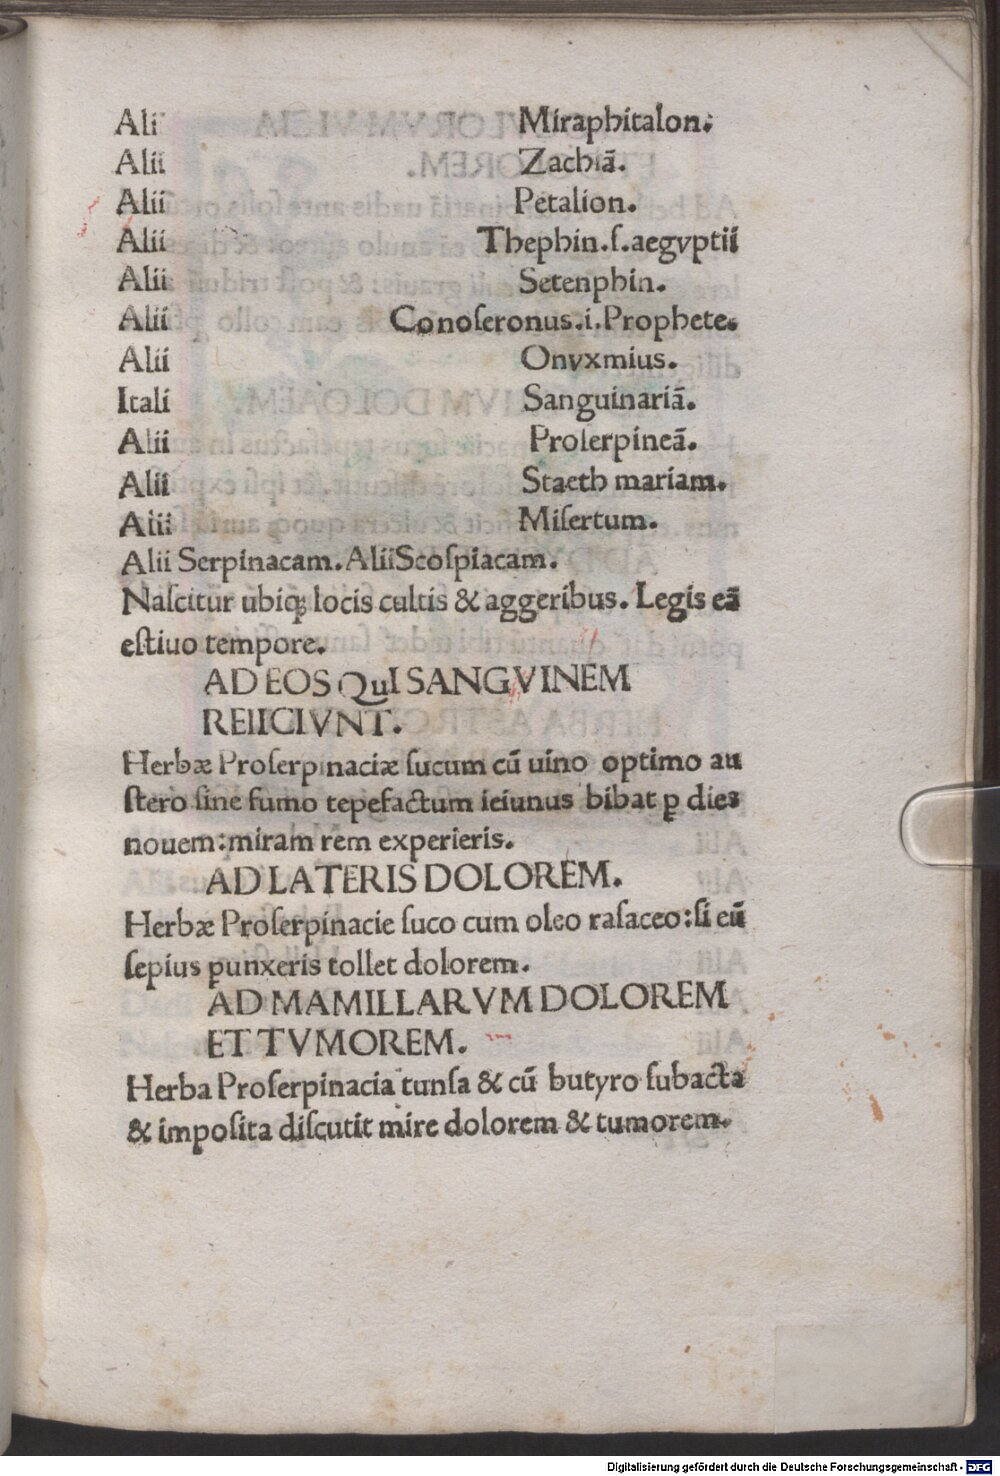 Alii Miraphitalon.
Alii Zachiā.
Alii Petalion.
Alii Thephin.ſ.aegyptii
Alii Setenphin.
Alii Conoſeronus.i.Prophete.
Alii Onyxmius.
Itali Sanguinariā.
Alii Proſerpineā.
Alii Staeth mariam.
Alii Miſertum.
Alii Serpinacam. Alii Scoſpiacam.
Naſcitur ubiq; locis cultis & aggeribus. Legis eā
eſtiuo tempore.
AD EOS QuI SANGVINEM
REIICIVNT.
Herbæ Proſerpinaciæ ſucum cū uino optimo au
ſtero ſine fumo tepefactum ieiunus bibat ꝑ dies
nouem: miram rem experieris.
AD LATERIS DOLOREM.
Herbæ Proſerpinacie ſuco cum oleo raſaceo: ſi eū
ſepius punxeris tollet dolorem.
AD MAMILLARVM DOLOREM
ET TVMOREM.
Herba Proſerpinacia tunſa & cū butyro ſubacta
& impoſita diſcutit mire dolorem & tumorem.
Digitalisierung gefördert durch die Deutsche Forschungsgemeinschaft - DFG